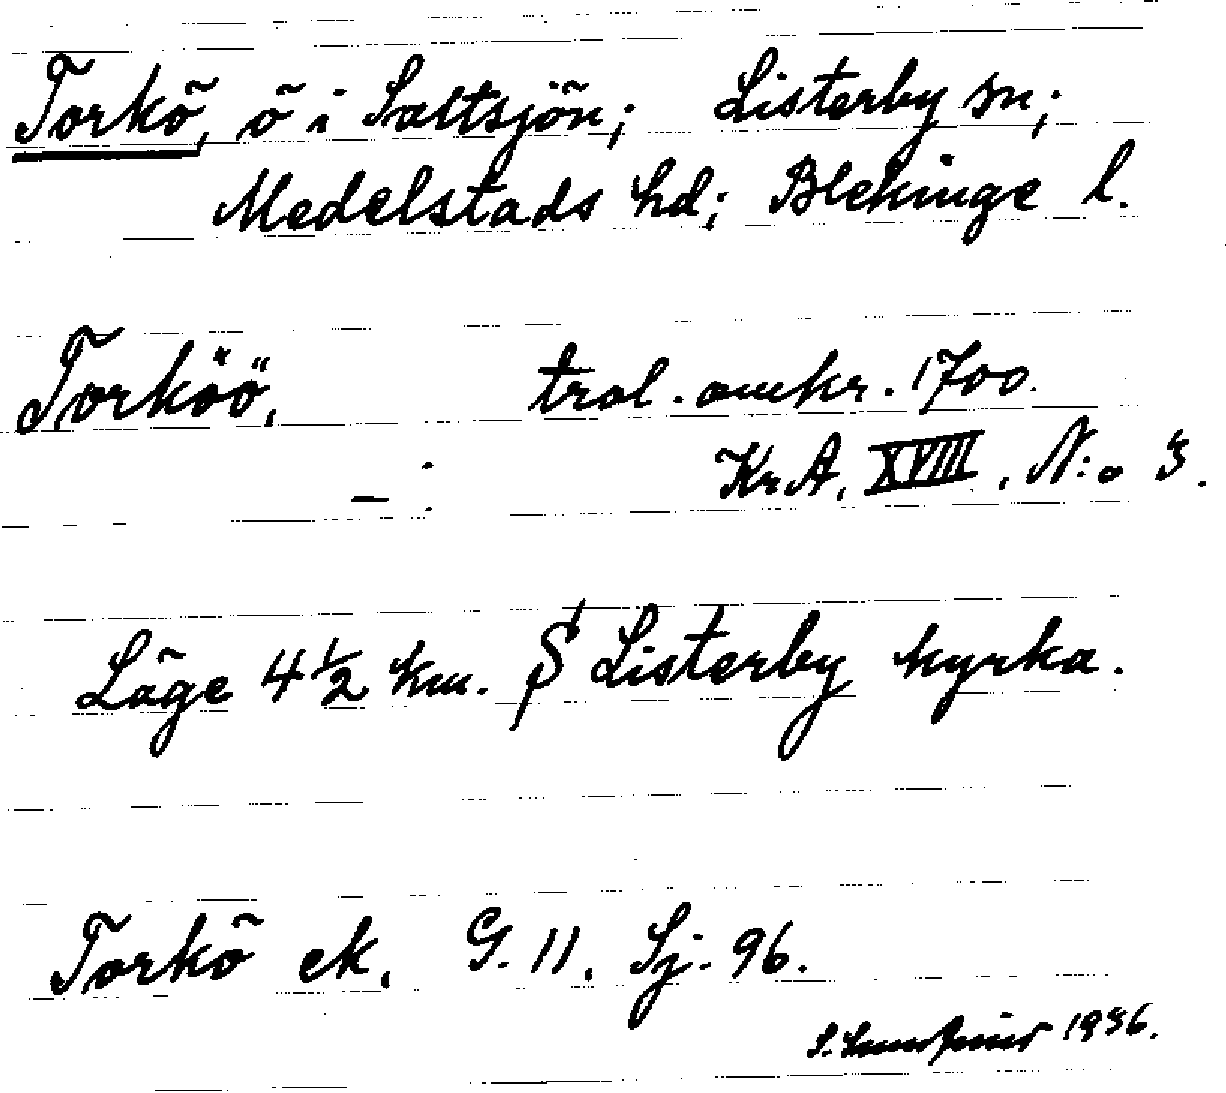 Torkö, ö i Saltsjön; Listerby sn;
Medelstads hd; Blekinge l.
Torköö, trol. omkr. 1700.
— : Kr.A. XVIII, N:o 3.
Läge 4 1/2 km. S Listerby kyrka.
Torkö ek. G. 11. Sj. 96.
S. 1936.